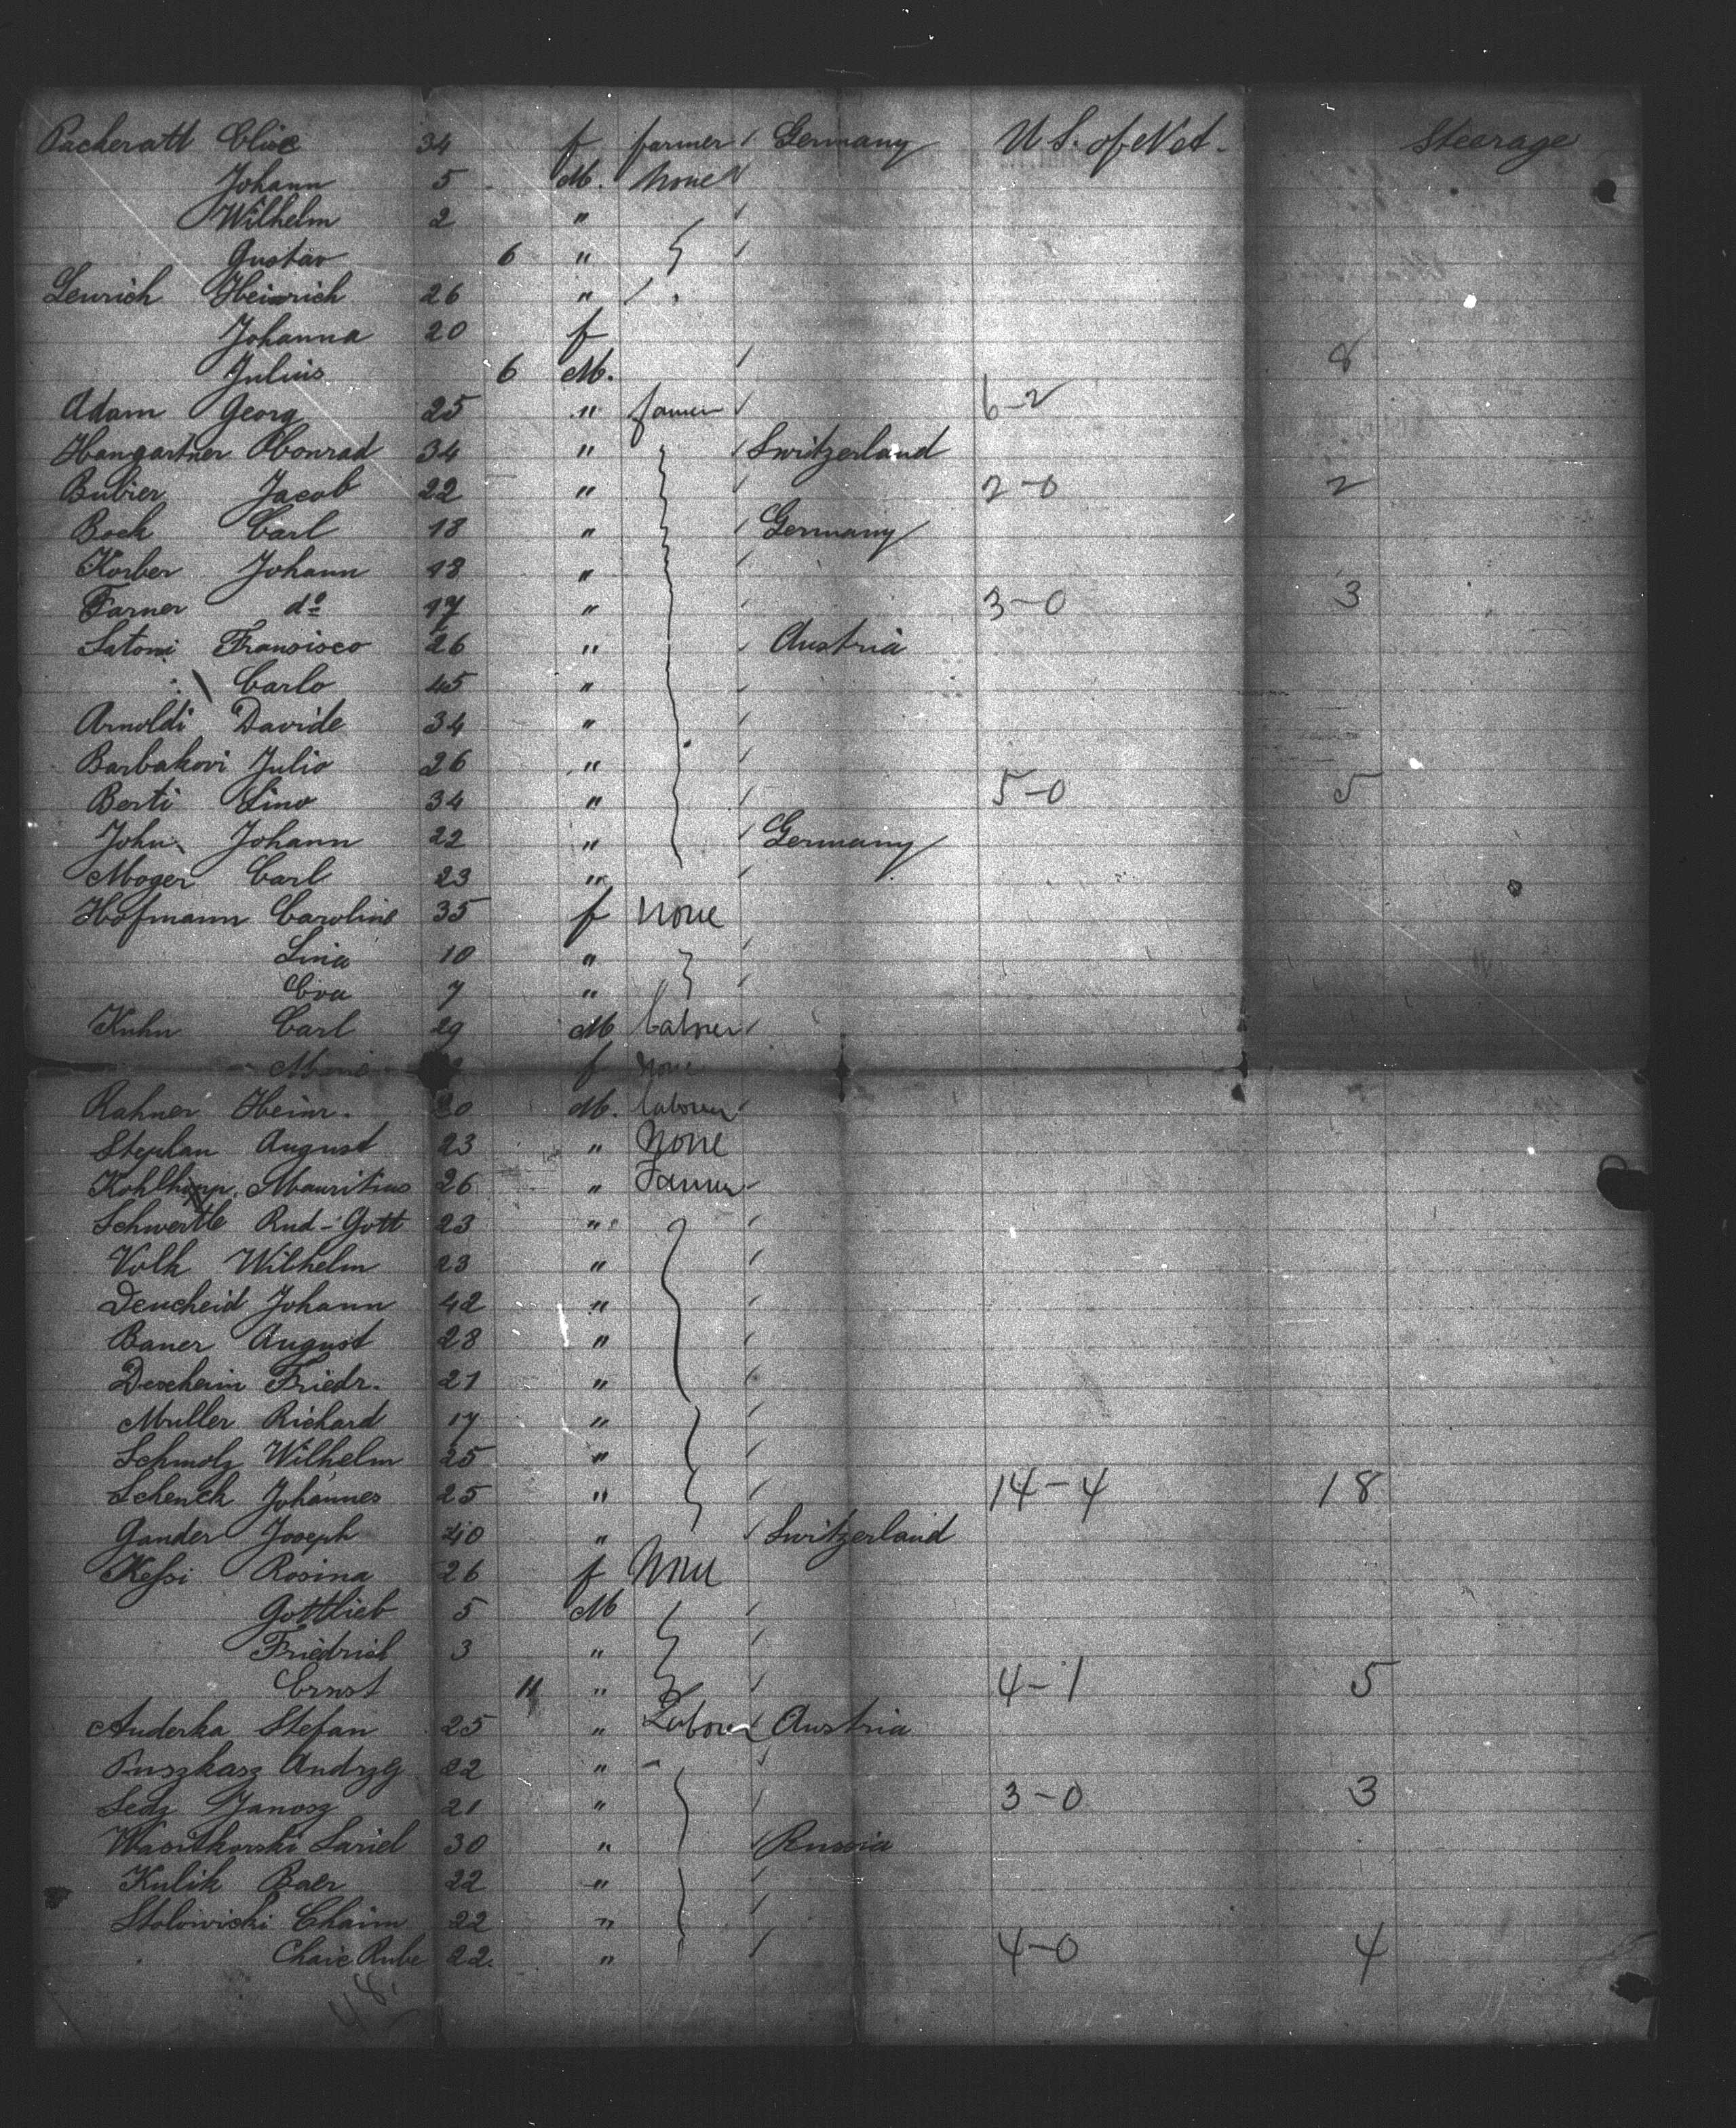 Packeratt Elise 34 f farmer / Germany U S. of Not. Steerage
Johann 5 M. None
Wilhelm 2 "
Gustav 6 "
Heinrich 26 "
Johanna 20 f
Julius 6 M. 8
Adam Georg 25 " farmer 6-2
Hangartner Conrad 34 " Switzerland
Bubier Jacob 22 " 2-0 2
Bock Carl 18 " Germany
Körber Johann 18 "
Farner do 17 " 3-0 3
Satoni Francisco 26 " Austria
" Carlo 45 "
Arnoldi Davide 34 "
Barbakovi Julio 26 "
Berti Lino 34 " 5-0 5
John Johann 22 " Germany
Moger Carl 23 "
Hofmann Caroline 35 f None
Lina 10 "
Eva 7 "
Kuhn Carl 29 M Labourer
f None
Rahner Heinr. M. labourer
Stephan August 23 " None
Mauritius 26 " Farmer
Schwertle Rud-Gott 23 "
Volk Wilhelm 23 "
Johann 42 "
Bauer August 28 "
Friedr. 21 "
Muller Richard 17 "
Schmolz Wilhelm 25 "
Schenck Johannes 25 " 14-4 18
Gander Joseph 40 " Switzerland
Kessi Rosina 26 f None
Gottlieb 5 M
Friedrich 3 "
Ernst 11 " 4-1 5
Anderka Stefan 25 " Labourer Austria
Puszkasz Andrzg 22 "
Janosz 21 " 3-0 3
30 " Russia
Kulik Baer 22 "
Stolowiski Chaim 22 "
Chaie Rube 22. " 4-0 4
48.